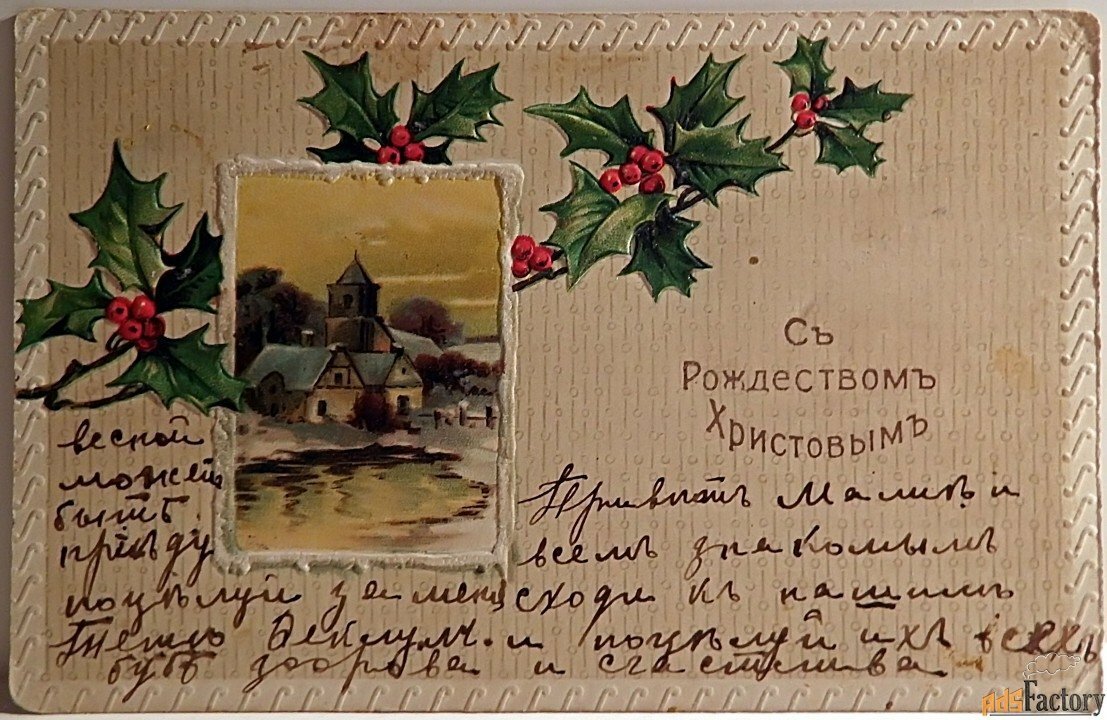 Съ
Рождествомъ
Христовымъ
весной
можетъ
быть
пріѣду
Привѣтъ Малинѣ и
всемъ знакомымъ
поцѣлуй за меня сходи къ нашимъ
поцѣлуй ихъ всѣхъ
будь здорова и счастлива
AdsFactory